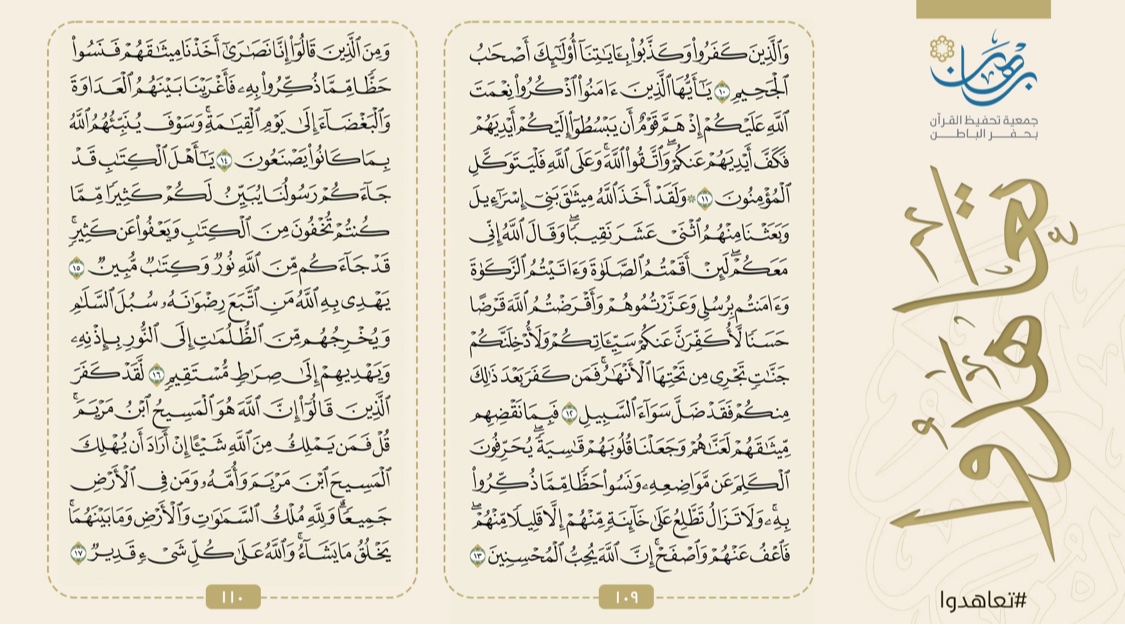 برهان
جمعية تحفيظ القرآن
بحفر الباطن
تعاهدوا
#تعاهدوا
وَٱلَّذِينَ كَفَرُوا۟ وَكَذَّبُوا۟ بِـَٔايَـٰتِنَآ أُو۟لَـٰٓئِكَ أَصْحَـٰبُ
ٱلْجَحِيمِ ١٠ يَـٰٓأَيُّهَا ٱلَّذِينَ ءَامَنُوا۟ ٱذْكُرُوا۟ نِعْمَتَ
ٱللَّهِ عَلَيْكُمْ إِذْ هَمَّ قَوْمٌ أَن يَبْسُطُوٓا۟ إِلَيْكُمْ أَيْدِيَهُمْ
فَكَفَّ أَيْدِيَهُمْ عَنكُمْ ۖ وَٱتَّقُوا۟ ٱللَّهَ ۚ وَعَلَى ٱللَّهِ فَلْيَتَوَكَّلِ
ٱلْمُؤْمِنُونَ ١١ ۞ وَلَقَدْ أَخَذَ ٱللَّهُ مِيثَـٰقَ بَنِىٓ إِسْرَٰٓءِيلَ
وَبَعَثْنَا مِنْهُمُ ٱثْنَىْ عَشَرَ نَقِيبًا ۖ وَقَالَ ٱللَّهُ إِنِّى
مَعَكُمْ ۖ لَئِنْ أَقَمْتُمُ ٱلصَّلَوٰةَ وَءَاتَيْتُمُ ٱلزَّكَوٰةَ
وَءَامَنتُم بِرُسُلِى وَعَزَّرْتُمُوهُمْ وَأَقْرَضْتُمُ ٱللَّهَ قَرْضًا
حَسَنًا لَّأُكَفِّرَنَّ عَنكُمْ سَيِّـَٔاتِكُمْ وَلَأُدْخِلَنَّكُمْ
جَنَّـٰتٍ تَجْرِى مِن تَحْتِهَا ٱلْأَنْهَـٰرُ ۚ فَمَن كَفَرَ بَعْدَ ذَٰلِكَ
مِنكُمْ فَقَدْ ضَلَّ سَوَآءَ ٱلسَّبِيلِ ١٢ فَبِمَا نَقْضِهِم
مِّيثَـٰقَهُمْ لَعَنَّـٰهُمْ وَجَعَلْنَا قُلُوبَهُمْ قَـٰسِيَةً ۖ يُحَرِّفُونَ
ٱلْكَلِمَ عَن مَّوَاضِعِهِۦ ۙ وَنَسُوا۟ حَظًّا مِّمَّا ذُكِّرُوا۟
بِهِۦ ۚ وَلَا تَزَالُ تَطَّلِعُ عَلَىٰ خَآئِنَةٍ مِّنْهُمْ إِلَّا قَلِيلًا مِّنْهُمْ ۖ
فَٱعْفُ عَنْهُمْ وَٱصْفَحْ ۚ إِنَّ ٱللَّهَ يُحِبُّ ٱلْمُحْسِنِينَ ١٣
١٠٩
وَمِنَ ٱلَّذِينَ قَالُوٓا۟ إِنَّا نَصَـٰرَىٰٓ أَخَذْنَا مِيثَـٰقَهُمْ فَنَسُوا۟
حَظًّا مِّمَّا ذُكِّرُوا۟ بِهِۦ فَأَغْرَيْنَا بَيْنَهُمُ ٱلْعَدَاوَةَ
وَٱلْبَغْضَآءَ إِلَىٰ يَوْمِ ٱلْقِيَـٰمَةِ ۚ وَسَوْفَ يُنَبِّئُهُمُ ٱللَّهُ
بِمَا كَانُوا۟ يَصْنَعُونَ ١٤ يَـٰٓأَهْلَ ٱلْكِتَـٰبِ قَدْ
جَآءَكُمْ رَسُولُنَا يُبَيِّنُ لَكُمْ كَثِيرًا مِّمَّا
كُنتُمْ تُخْفُونَ مِنَ ٱلْكِتَـٰبِ وَيَعْفُوا۟ عَن كَثِيرٍ ۚ
قَدْ جَآءَكُم مِّنَ ٱللَّهِ نُورٌ وَكِتَـٰبٌ مُّبِينٌ ١٥
يَهْدِى بِهِ ٱللَّهُ مَنِ ٱتَّبَعَ رِضْوَٰنَهُۥ سُبُلَ ٱلسَّلَـٰمِ
وَيُخْرِجُهُم مِّنَ ٱلظُّلُمَـٰتِ إِلَى ٱلنُّورِ بِإِذْنِهِۦ
وَيَهْدِيهِمْ إِلَىٰ صِرَٰطٍ مُّسْتَقِيمٍ ١٦ لَّقَدْ كَفَرَ
ٱلَّذِينَ قَالُوٓا۟ إِنَّ ٱللَّهَ هُوَ ٱلْمَسِيحُ ٱبْنُ مَرْيَمَ ۚ
قُلْ فَمَن يَمْلِكُ مِنَ ٱللَّهِ شَيْـًٔا إِنْ أَرَادَ أَن يُهْلِكَ
ٱلْمَسِيحَ ٱبْنَ مَرْيَمَ وَأُمَّهُۥ وَمَن فِى ٱلْأَرْضِ
جَمِيعًا ۗ وَلِلَّهِ مُلْكُ ٱلسَّمَـٰوَٰتِ وَٱلْأَرْضِ وَمَا بَيْنَهُمَا ۚ
يَخْلُقُ مَا يَشَآءُ ۚ وَٱللَّهُ عَلَىٰ كُلِّ شَىْءٍ قَدِيرٌ ١٧
١١٠